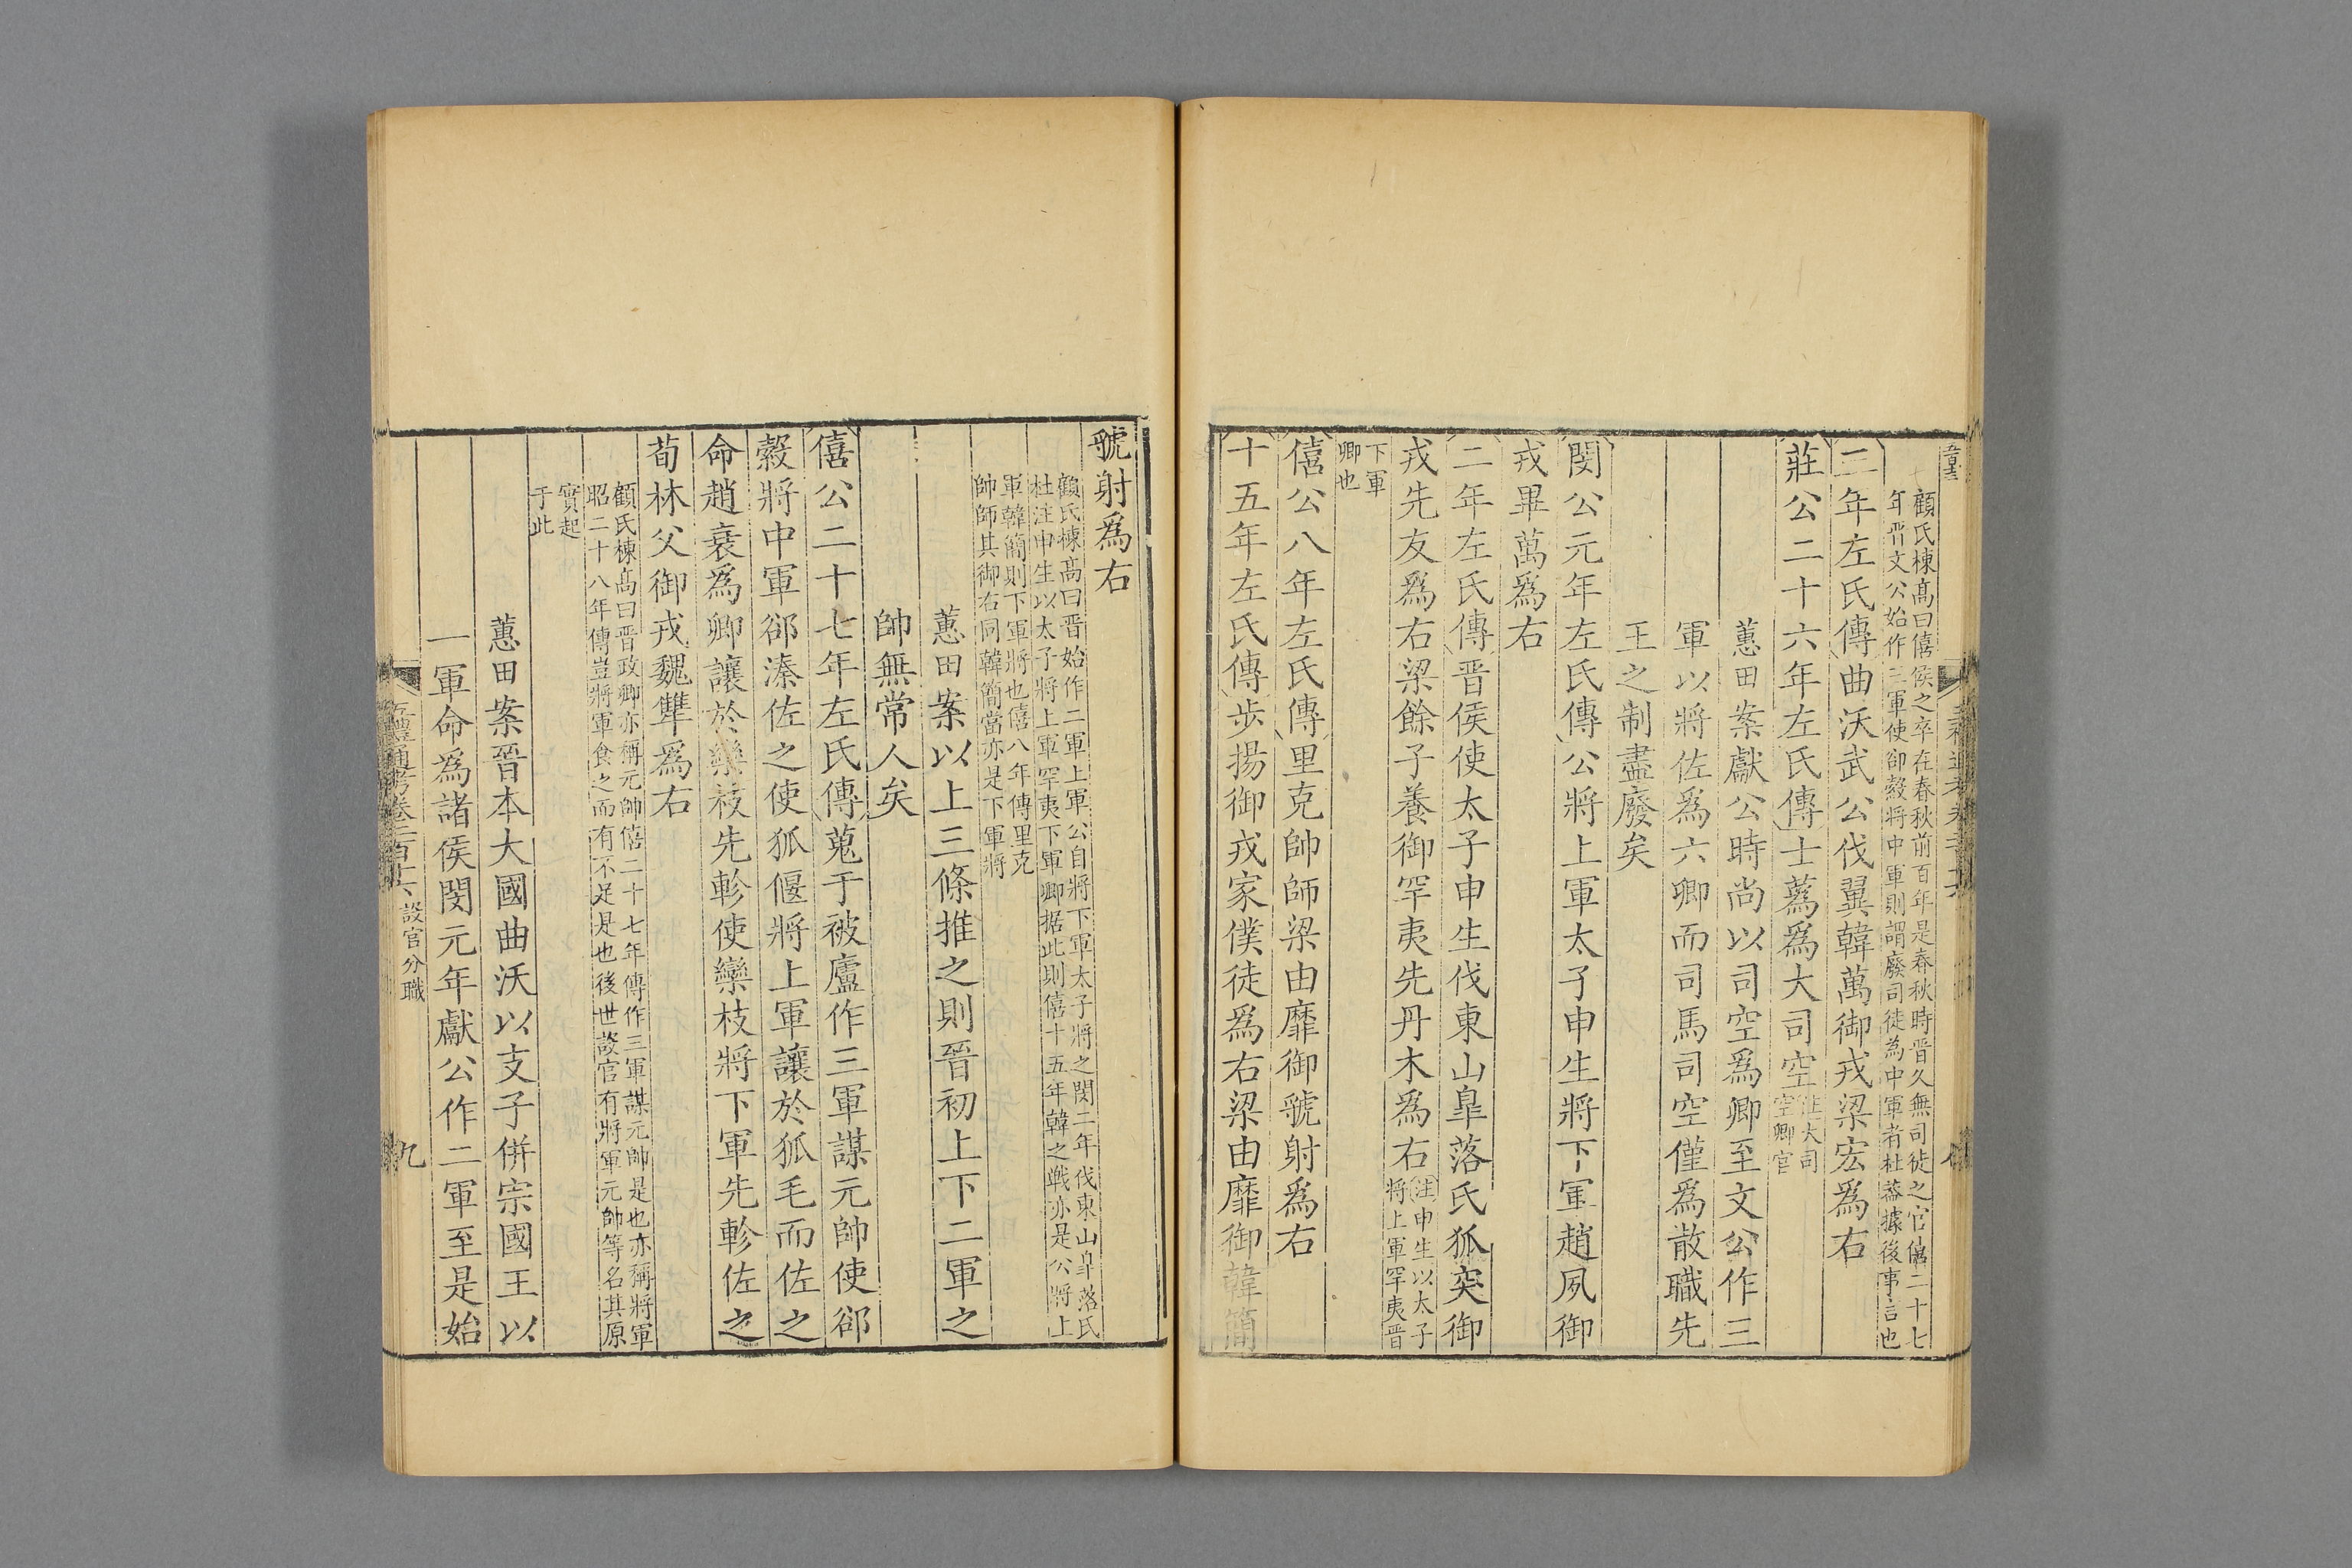 顧氏棟高曰僖侯之卒在春秋前百年是春秋時晉久無司徒之官僖二十七
年晉文公始作三軍使郤縠將中軍則謂廢司徒為中軍者杜葢據後事言也
二年左氏傳曲沃武公伐翼韓萬御戎梁宏爲右
莊公二十六年左氏傳士蒍爲大司空注大司
空卿官
蕙田案獻公時尚以司空爲卿至文公作三
軍以將佐爲六卿而司馬司空僅爲散職先
王之制盡廢矣
閔公元年左氏傳公將上軍太子申生將下軍趙夙御
戎畢萬爲右
二年左氏傳晉侯使太子申生伐東山臯落氏狐突御
戎先友爲右梁餘子養御罕夷先丹木爲右注申生以太子
將上軍罕夷晉
下軍
卿也
僖公八年左氏傳里克帥師梁由靡御虢射爲右
十五年左氏傳步揚御戎家僕徒爲右梁由靡御韓簡
虢射爲右
顧氏棟高曰晉始作二軍上軍公自將下軍太子將之閔二年伐東山臯落氏
杜注申生以太子將上軍罕夷下軍卿据此則僖十五年韓之戰亦是公將上
軍韓簡則下軍將也僖八年傳里克
帥師其御右同韓簡當亦是下軍將
蕙田案以上三條推之則晉初上下二軍之
帥無常人矣
僖公二十七年左氏傳蒐于被廬作三軍謀元帥使郤
縠將中軍郤溱佐之使狐偃將上軍讓於狐毛而佐之
命趙衰爲卿讓於欒枝先軫使欒枝將下軍先軫佐之
荀林父御戎魏犨爲右
顧氏棟高曰晉政卿亦稱元帥僖二十七年傳作三軍謀元帥是也亦稱將軍
昭二十八年傳豈將軍食之而有不足是也後世設官有將軍元帥等名其原
實起
于此
蕙田案晉本大國曲沃以支子併宗國王以
一軍命爲諸侯閔元年獻公作二軍至是始
五禮通考卷二百十六 設官分職
九